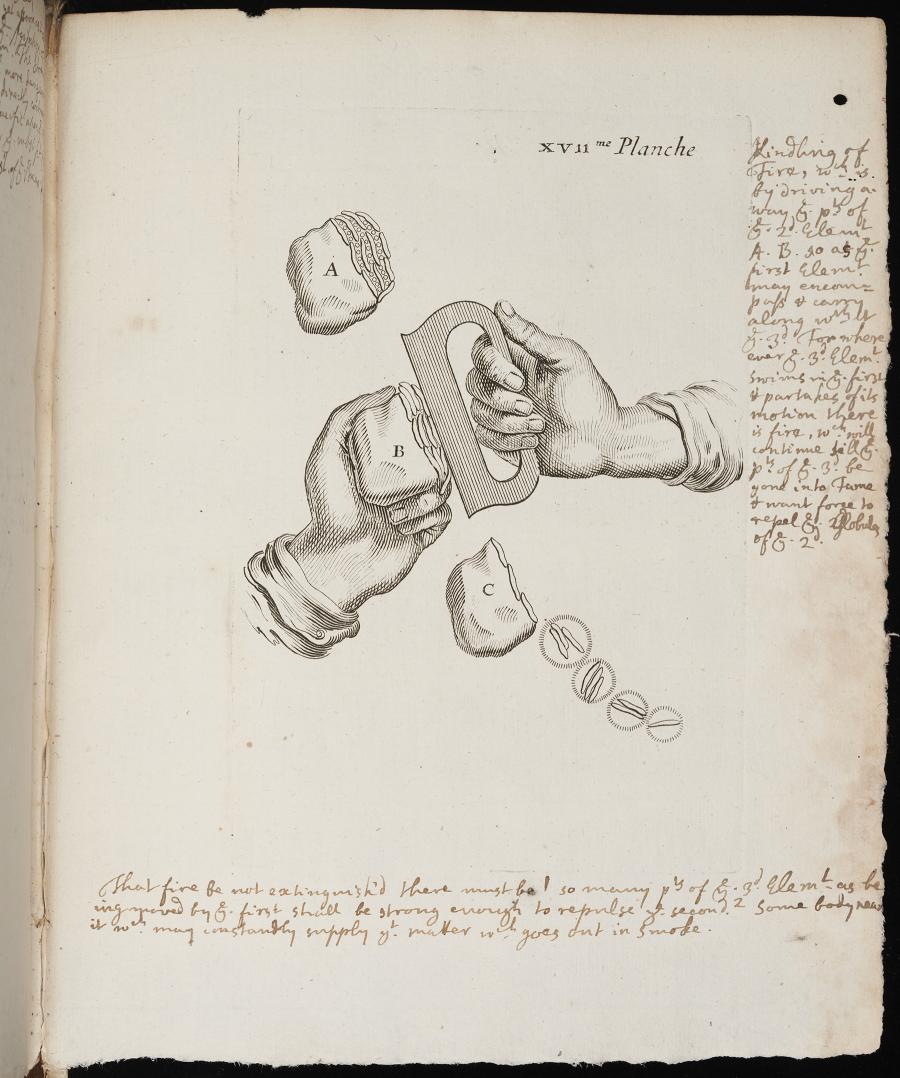 XVIIme Planche
A
B
C
Kindling of
Fire, wch is
by driving a-
way ye pts of
ye 2d Elemt
A. B. so as ye
first Elemt
may encom=
pass & carry
along wth it
ye 3d. For where
ever ye 3d Elemt
swims in ye first
& partakes of its
motion there
is fire, wch will
continue till ye
pts of ye 3d be
gone into Fume
& want force to
repel ye Globules
of ye 2d.
That fire be not extinguish'd there must be 1 so many pts of ye 3d Elemt as be
ing moved by ye first shall be strong enough to repulse ye second. 2 Some body near
it wch may constantly supply yt matter wch goes out in Smoke.